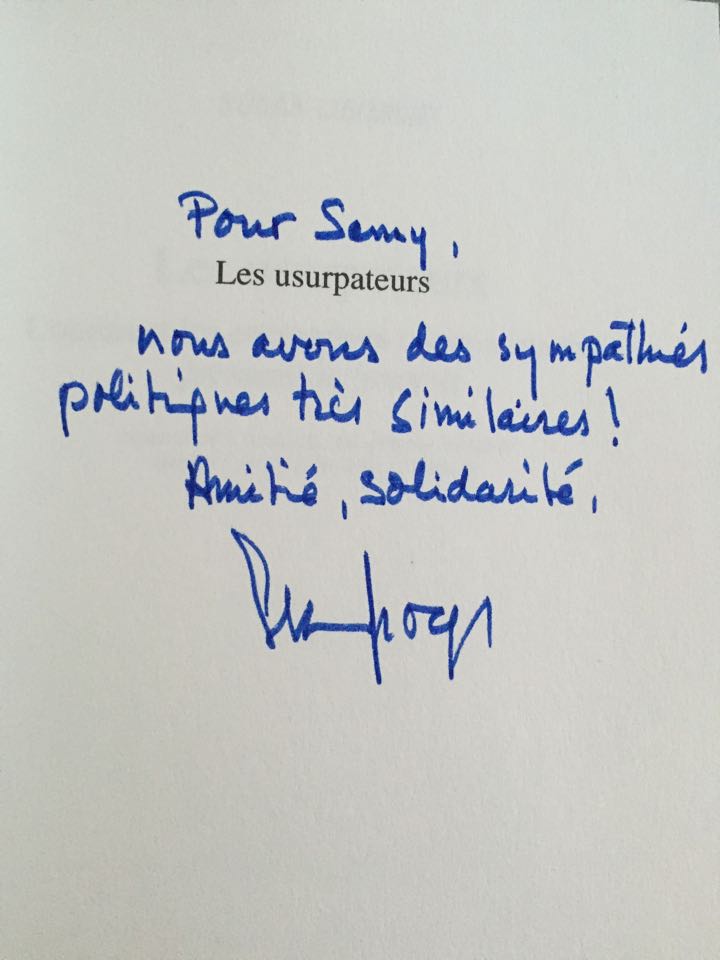 Pour Samy,
Les usurpateurs
nous avons des sympathies
politiques très similaires !
Amitié, solidarité,